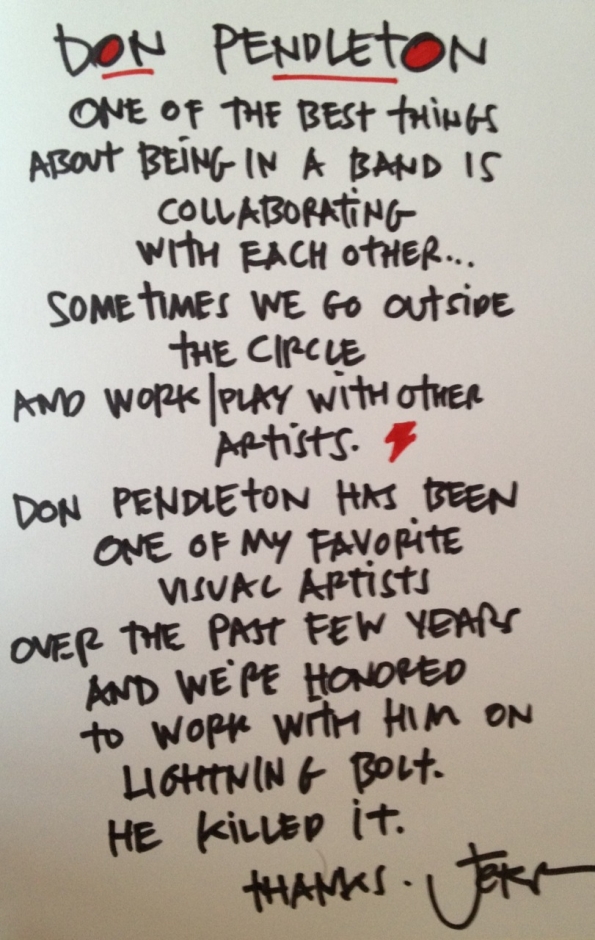 DON PENDLETON
ONE OF THE BEST THINGS
ABOUT BEING IN A BAND IS
COLLABORATING
WITH EACH OTHER...
SOMETIMES WE GO OUTSIDE
THE CIRCLE
AND WORK|PLAY WITH OTHER
ARTISTS.
DON PENDLETON HAS BEEN
ONE OF MY FAVORITE
VISUAL ARTISTS
OVER THE PAST FEW YEARS
AND WE'RE HONORED
TO WORK WITH HIM ON
LIGHTNING BOLT.
HE KILLED IT.
THANKS.